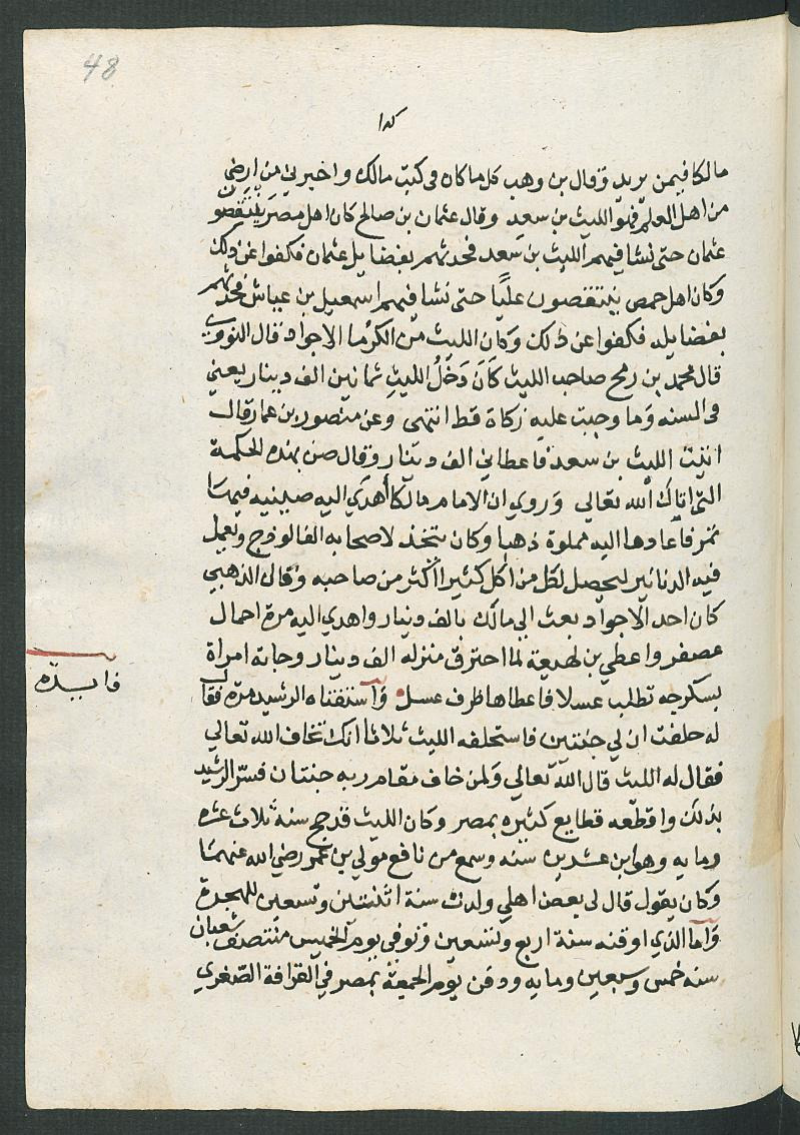 48
كدا
مالكا فيمن يريد وقال بن وهب كل ما كان فى كتب مالك واخبرني من ارضى
من اهل العلم فهو الليث بن سعد وقال عثمان بن صالح كان اهل مصر ينتقصون
عثمان حتى نشا فيهم الليث بن سعد فحدثهم بفضايل عثمان فكفوا عن ذلك
وكان اهل حمص ينتقصون عليًا حتى نشا فيهم اسمعيل بن عياش فحدثهم
بفضايله فكفوا عن ذلك وكان الليث من الكرما الاجواد قال النووي
قال محمد بن رمح صاحب الليث كَانَ دَخْلُ الليثِ ثمانين الف دينار يعني
فى السنه وما وجبت عليه زكاة قط انتهى وعن منصور بن عمار قال
اتيت الليث بن سعد فاعطاني الف دينار وقال صن بهذه الحكمة
التى اتاك الله تعالي وروي ان الامام مالكا أهدي اليه صينيه فيها
تمر فاعادها اليه مملوة ذهبا وكان يتخذ لاصحابه الفالوذج ويعمل
فيه الدنانير ليحصل لكل من اكل كثيرا اكثر من صاحبه وقال الذهبي
كان احد الاجواد بعث الي مالك بالف دينار واهدي اليه مرة احمال
عصفر واعطي بن لهيعة لما احترق منزله الف دينار وجاته امراة
بسكرجه تطلب عسلا فاعطاها ظرف عسل واستفتاه الرشيد مرة فقال
له حلفت ان لي جنتين فاستحلفه الليث ثلاثا انك تخاف الله تعالي
فقال له الليث قال الله تعالي ولمن خاف مقام ربه جنتان فسر الرشيد
بذلك واقطعه قطايع كثيره بمصر وكان الليث قد حج سنة ثلاث عشره
ومايه وهو ابن عشرين سنه وسمع من نافع مولي بن عمر رضي الله عنهما
وكان يقول قال لى بعض اهلي ولدت سنة اثنتين وتسعين للهجرة
واما الذي اوقنه سنة اربع وتسعين وتوفى يوم الخميس منتصف شعبان
سنه خمس وسبعين ومايه ودفن يوم الجمعة بمصر في القرافة الصغري
فايدة